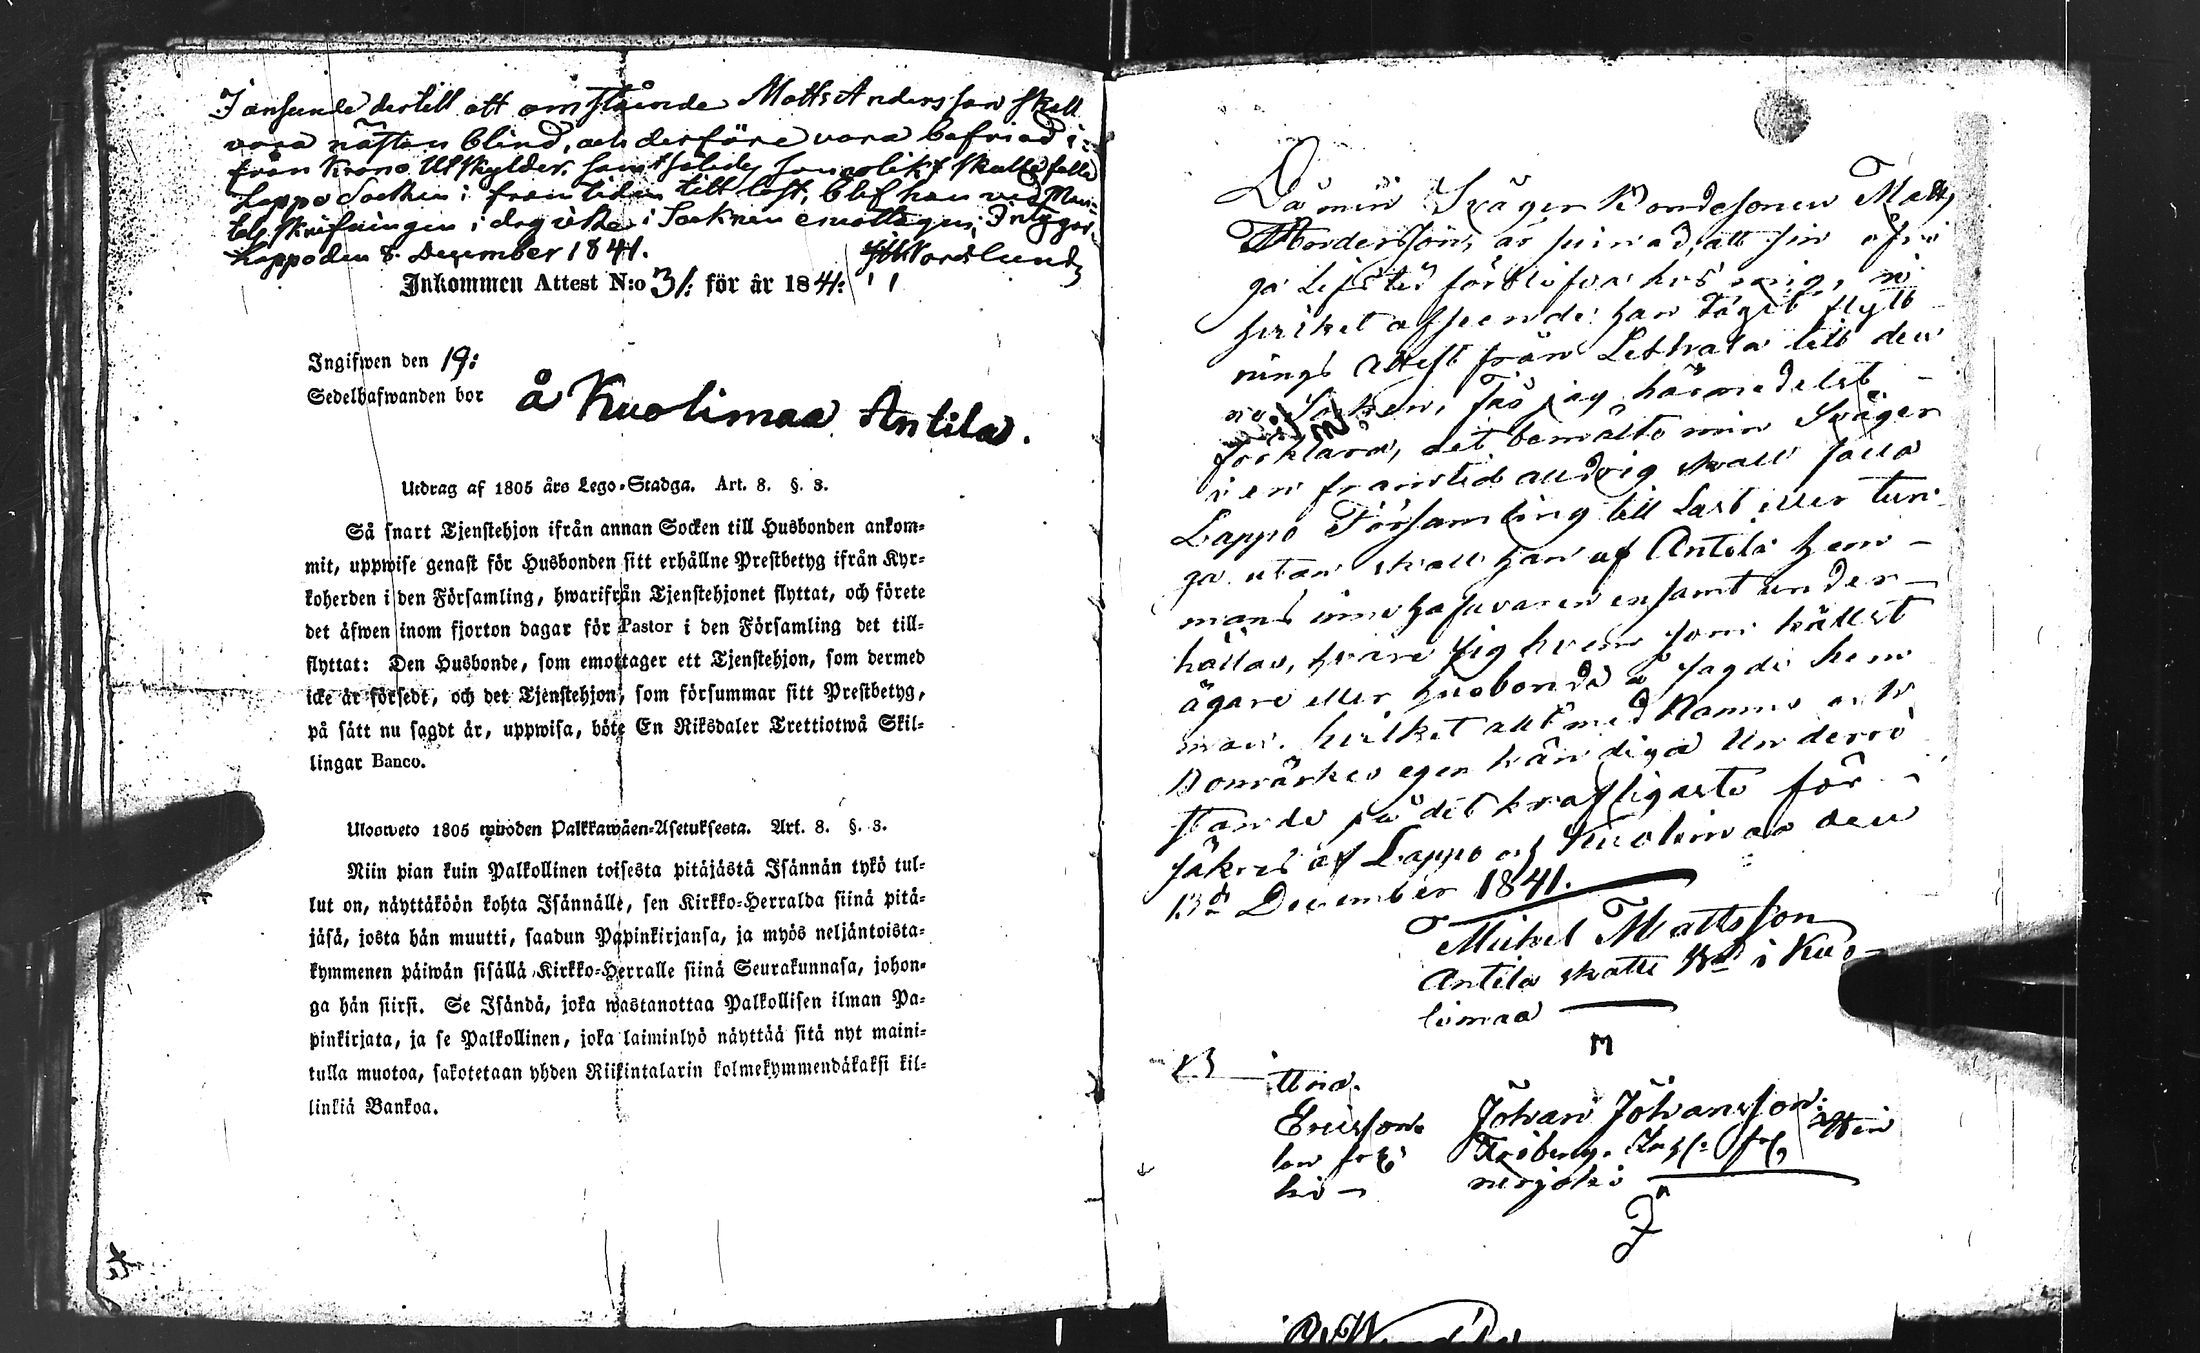 I anseende dertill att omstående Matts Andersson skall
vara nästan blind, och derföre vara befriad i-
från Krono Utskylder, samt således sannolikt skulle falla
Lappo Socken i framtiden till last, blef han vid Man-
tals skrifningen i dag icke i Socknen emottagen; Intygar.
Lappo den 8 December 1841.
Nordlund
Inkommen Attest N:o 31: för år 1841:
Ingifwen den 19:
Sedelhafwanden bor å Kuolimaa Antila.
Utdrag af 1805 års Lego-Stadga. Art. 8. §. 3.
Så snart Tjenstehjon ifrån annan Socken till Husbonden ankom-
mit, uppwise genast för Husbonden sitt erhållne Prestbetyg ifrån Kyr-
koherden i den Församling, hwarifrån Tjenstehjonet flyttat, och förete
det äfwen inom fjorton dagar för Pastor i den Församling det till-
flyttat: Den Husbonde, som emottager ett Tjenstehjon, som dermed
icke är försedt, och det Tjenstehjon, som försummar sitt Prestbetyg,
på sätt nu sagdt är, uppwisa, böte En Riksdaler Trettiotwå Skil-
lingar Banco.
Ulosweto 1805 wuoden Palkkawäen-Asetuksesta. Art. 8. §. 3.
Niin pian kuin Palkollinen toisesta pitäjästä Isännän tykö tul-
lut on, näyttäköön kohta Isännälle, sen Kirkko-Herralda siinä pitä-
jäsä, josta hän muutti, saadun Papinkirjansa, ja myös neljäntoista-
kymmenen päiwän sisällä Kirkko-Herralle siinä Seurakunnasa, johon-
ga hän siirsi. Se Isändä, joka wastanottaa Palkollisen ilman Pa-
pinkirjata, ja se Palkollinen, joka laiminlyö näyttää sitä nyt maini-
tulla muotoa, sakotetaan yhden Riikintalarin kolmekymmendäkaksi kil-
linkiä Bankoa.
Då min Svåger Bondesonen Matts
Andersson, är sinnad, att sin öfri
ga Lifstid förblifva hos mig, i
hvilket afseende han tagit flytt
nings attest från Lethala till den
na Socken, Fås jag härmedelst
förklara, det bemälte min Svåger
i en framtid alldrig skall falla
Lappo Församling till Last eller tun-
ga utan skall han af Antila hem-
mans innehafvaren ensamt under-
hållas, hvare sig hvem som hällst
ägare eller husbonde å sagde hem
man. hvilket allt med Namns och
Bomärkes egenhändiga Underri
stande på det kraftigaste för-
säkras af Lappo och Kuolimaa den
13d December 1841.
Michel Mattsson
Antila skatte Bd i Kuo-
limaa
M
ttna.
Ericsson Johan Johansson
Friberg
ki - nerjoki